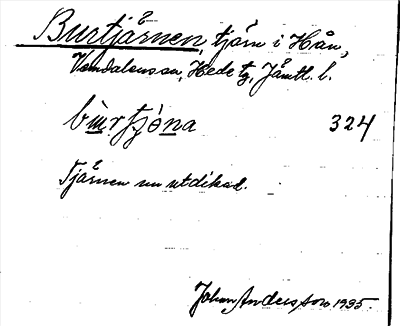 Burtjårnen, tjärn i Hån,
Vemdalens sn, Hede tg, Jämtl. l.
bu̇rtjóna 324
Tjärnen nu utdikad.
Johan Andersson 1935.